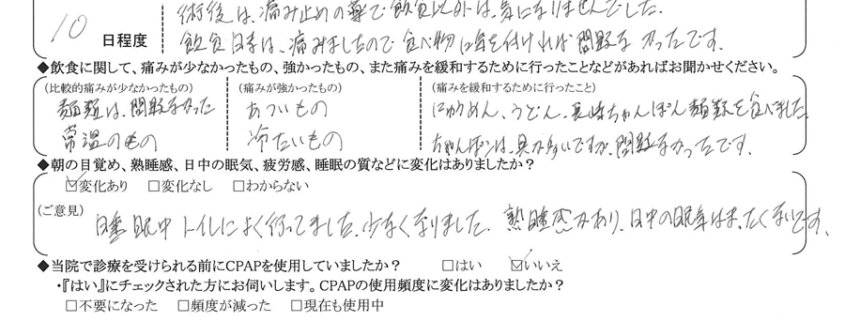 術後は、痛み止めの薬で飲食以外は、気になりませんでした。
10 日程度 飲食日時は、痛みましたので食べ物に気を付ければ問題なかったです。
◆飲食に関して、痛みが少なかったもの、強かったもの、また痛みを緩和するために行ったことなどがあればお聞かせください。
(比較的痛みが少なかったもの) (痛みが強かったもの) (痛みを緩和するために行ったこと)
麺類は、問題なかった あついもの にゅうめん、うどん、長崎ちゃんぽん麺類を食べました。
常温のもの 冷たいもの ちゃんぽんは、具が多いですが、問題なかったです。
◆朝の目覚め、熟睡感、日中の眠気、疲労感、睡眠の質などに変化はありましたか？
☑変化あり □変化なし □わからない
(ご意見) 睡眠中トイレによく行ってました、少なくなりました。熟睡感があり、日中の眠気はまったくないです。
◆当院で診療を受けられる前にCPAPを使用していましたか？ □はい ☑いいえ
・『はい』にチェックされた方にお伺いします。CPAPの使用頻度に変化はありましたか？
□不要になった □頻度が減った □現在も使用中